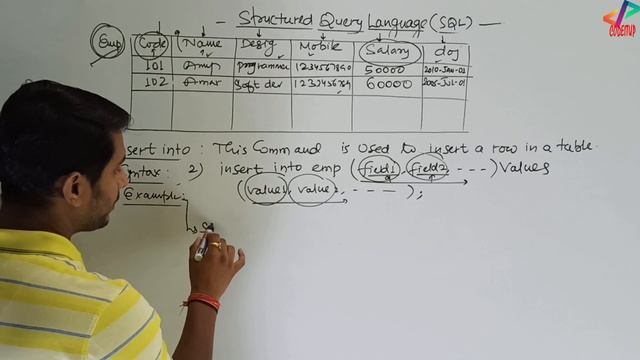 - Structured Query Language (SQL) -
CODEITUP
Emp
Code Name Desig Mobile Salary doj
101 Anup programmer 1234567890 50000 2010-Jan-01
102 Amar Soft dev 60000
nsert into : This Command is used to insert a row in a table.
ntax: 2) insert into emp (field1, field2, ---) Values
Example: (value1, value2, ----);